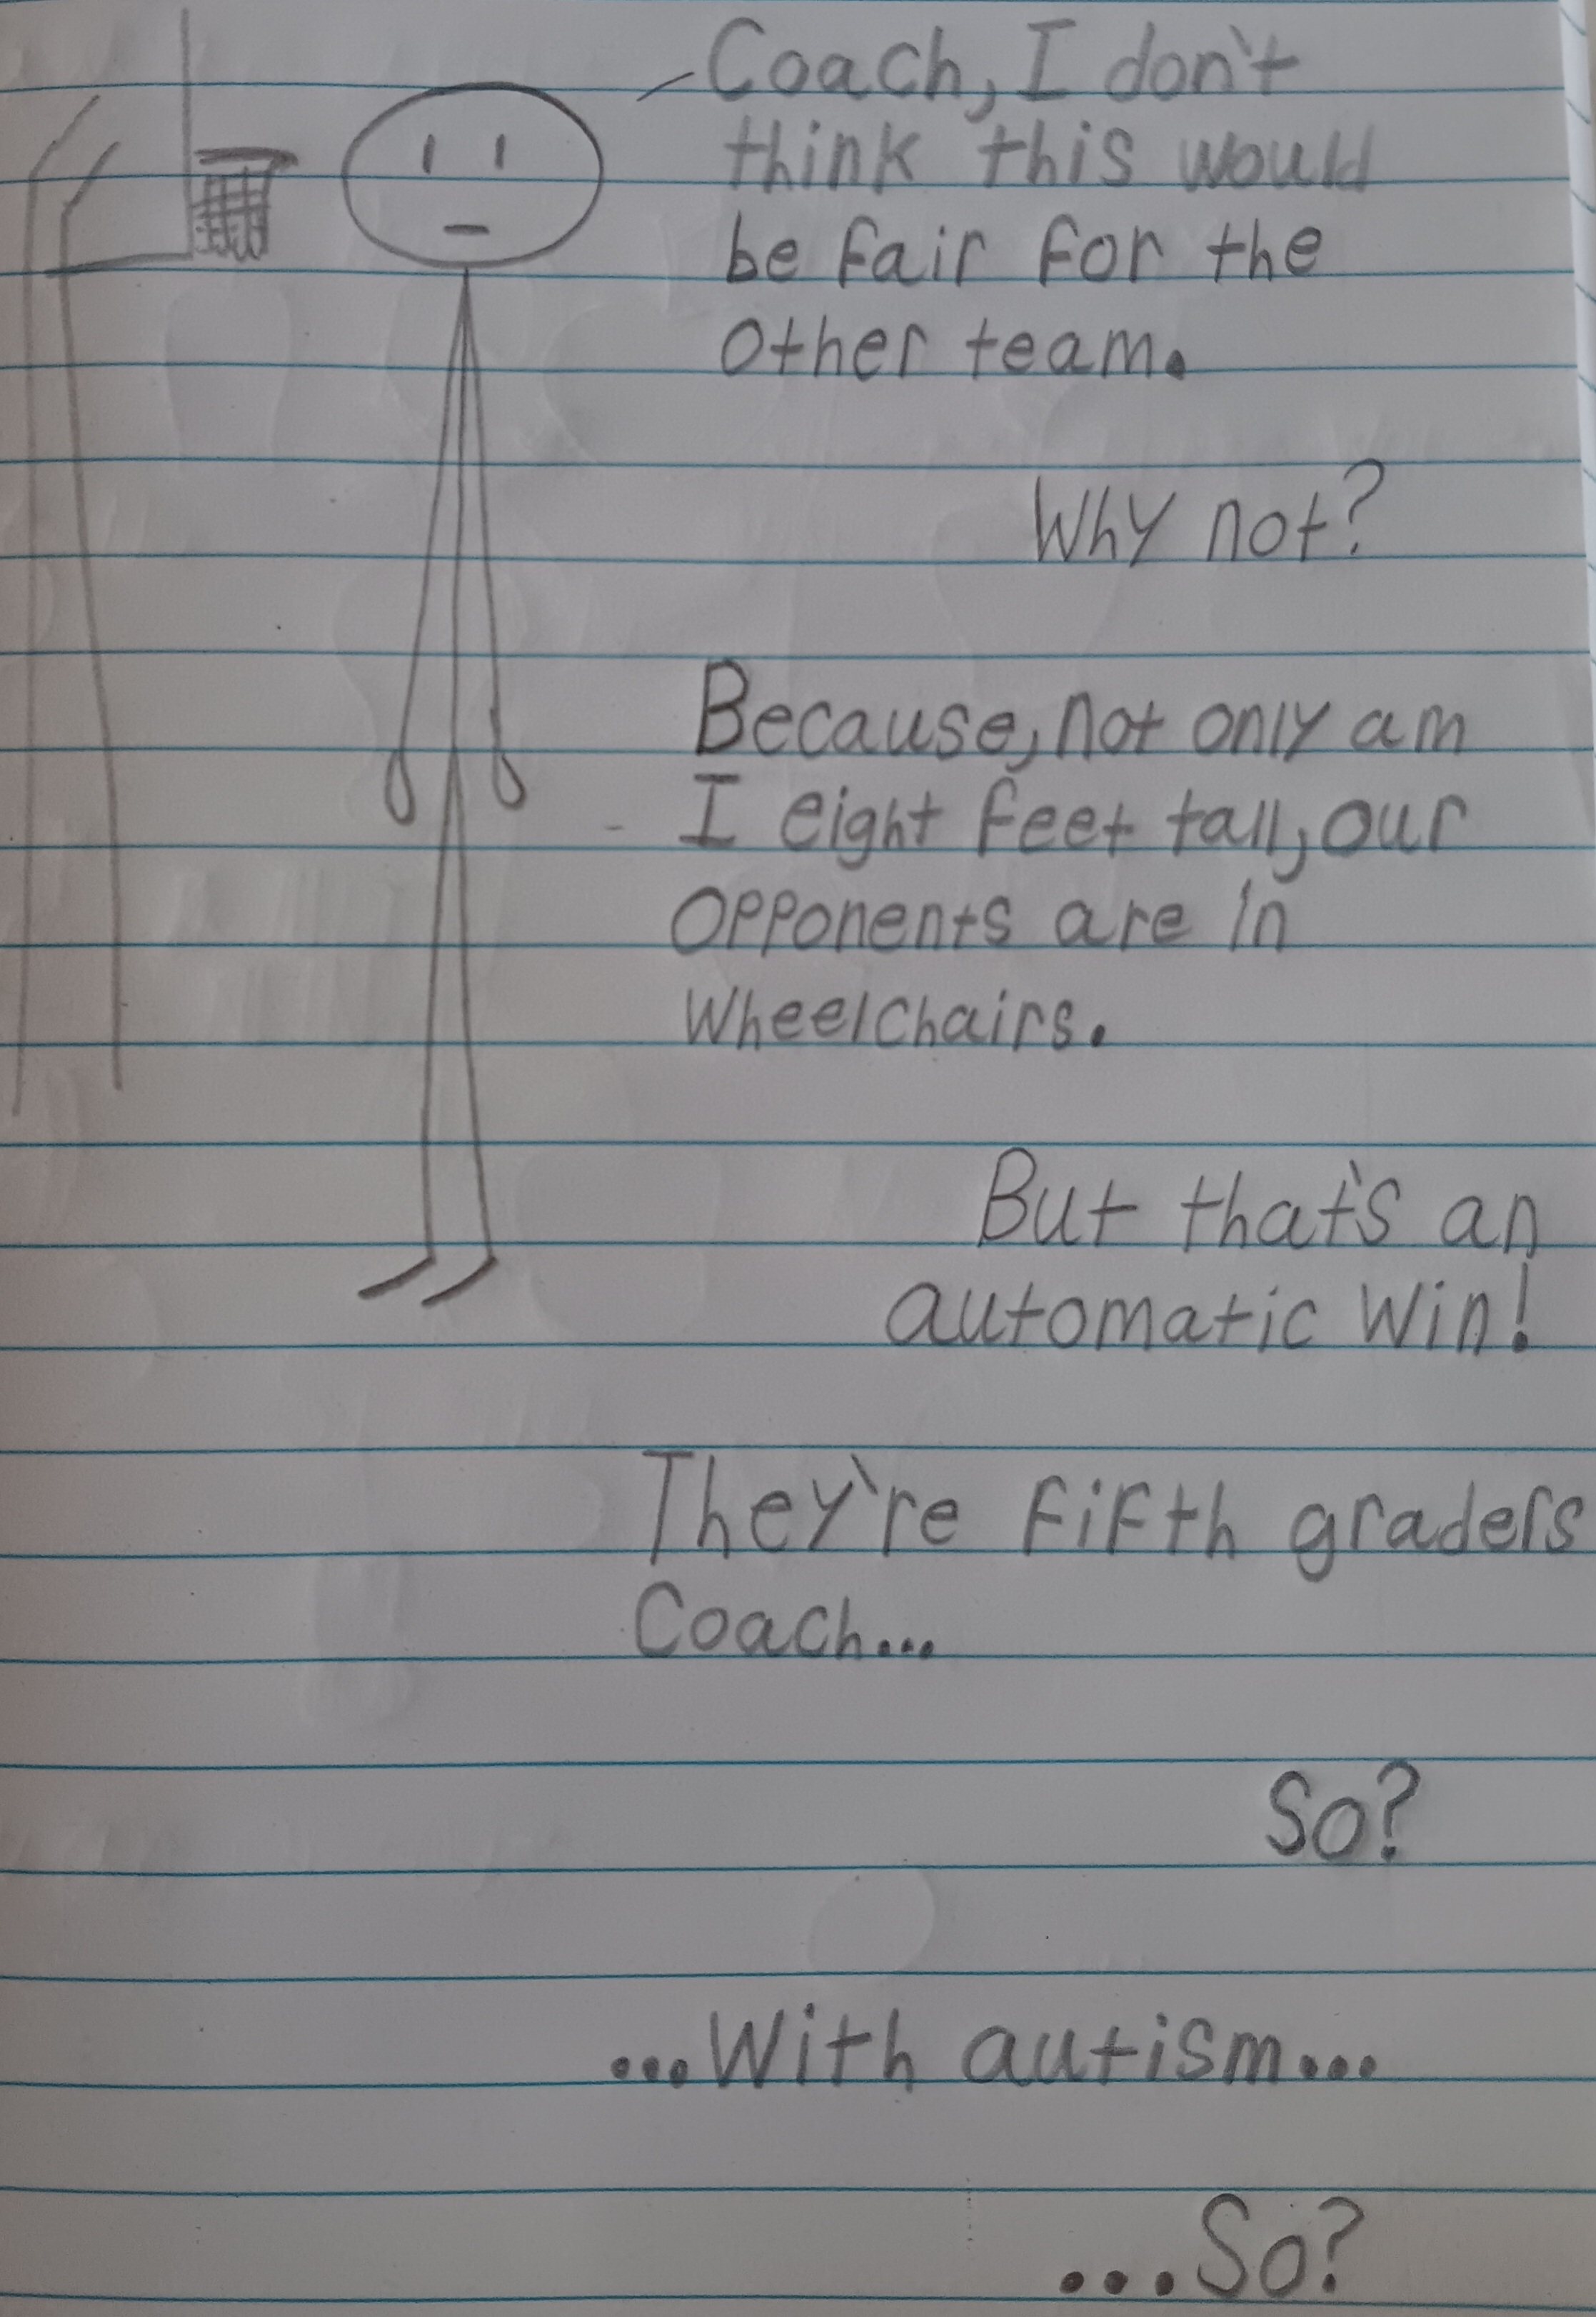 Coach, I don't
think this would
be fair for the
other team.
Why not?
Because, not only am
I eight feet tall, our
opponents are in
wheelchairs.
But that's an
automatic win!
They're fifth graders
Coach...
So?
...With autism...
...So?